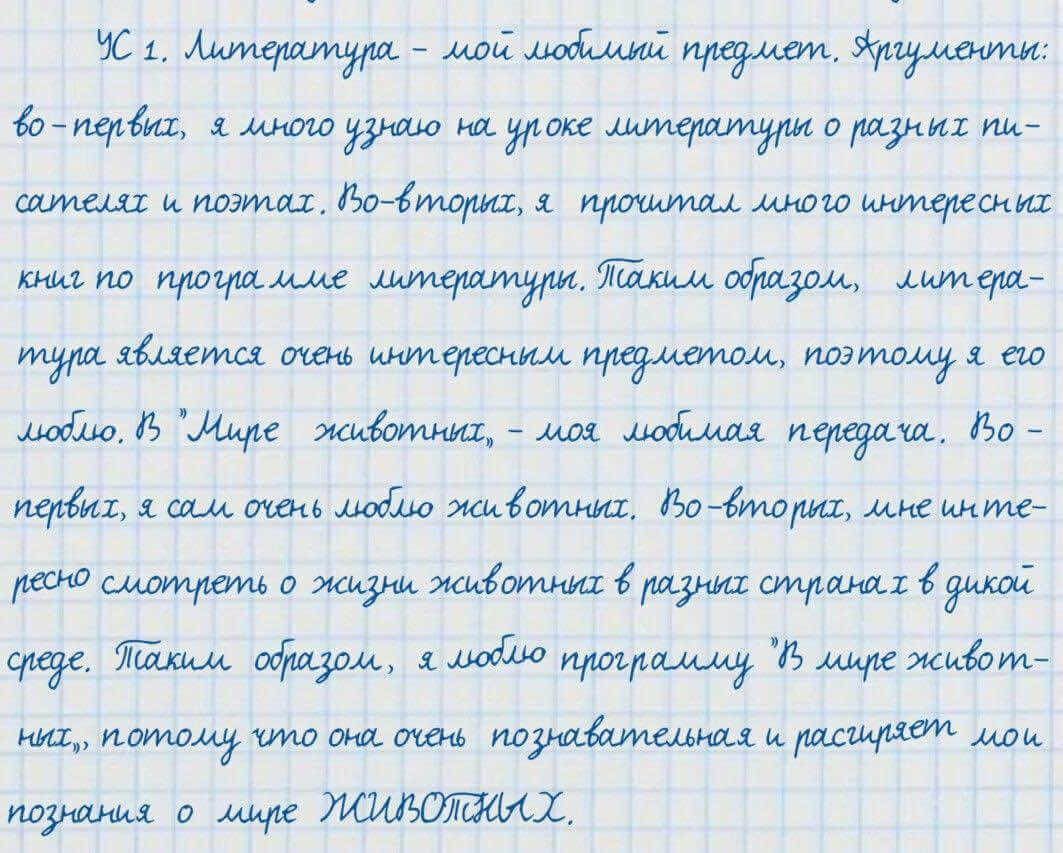 УС 1. Литература - мой любимый предмет. Аргументы:
во-первых, я много узнаю на уроке литературы о разных пи-
сателях и поэтах. Во-вторых, я прочитал много интересных
книг по программе литературы. Таким образом, литера-
тура является очень интересным предметом, поэтому я его
люблю. В "Мире животных„ - моя любимая передача. Во-
первых, я сам очень люблю животных. Во-вторых, мне инте-
ресно смотреть о жизни животных в разных странах в дикой
среде. Таким образом, я люблю программу "В мире живот-
ных„, потому что она очень познавательная и расширяет мои
познания о мире ЖИВОТНЫХ.